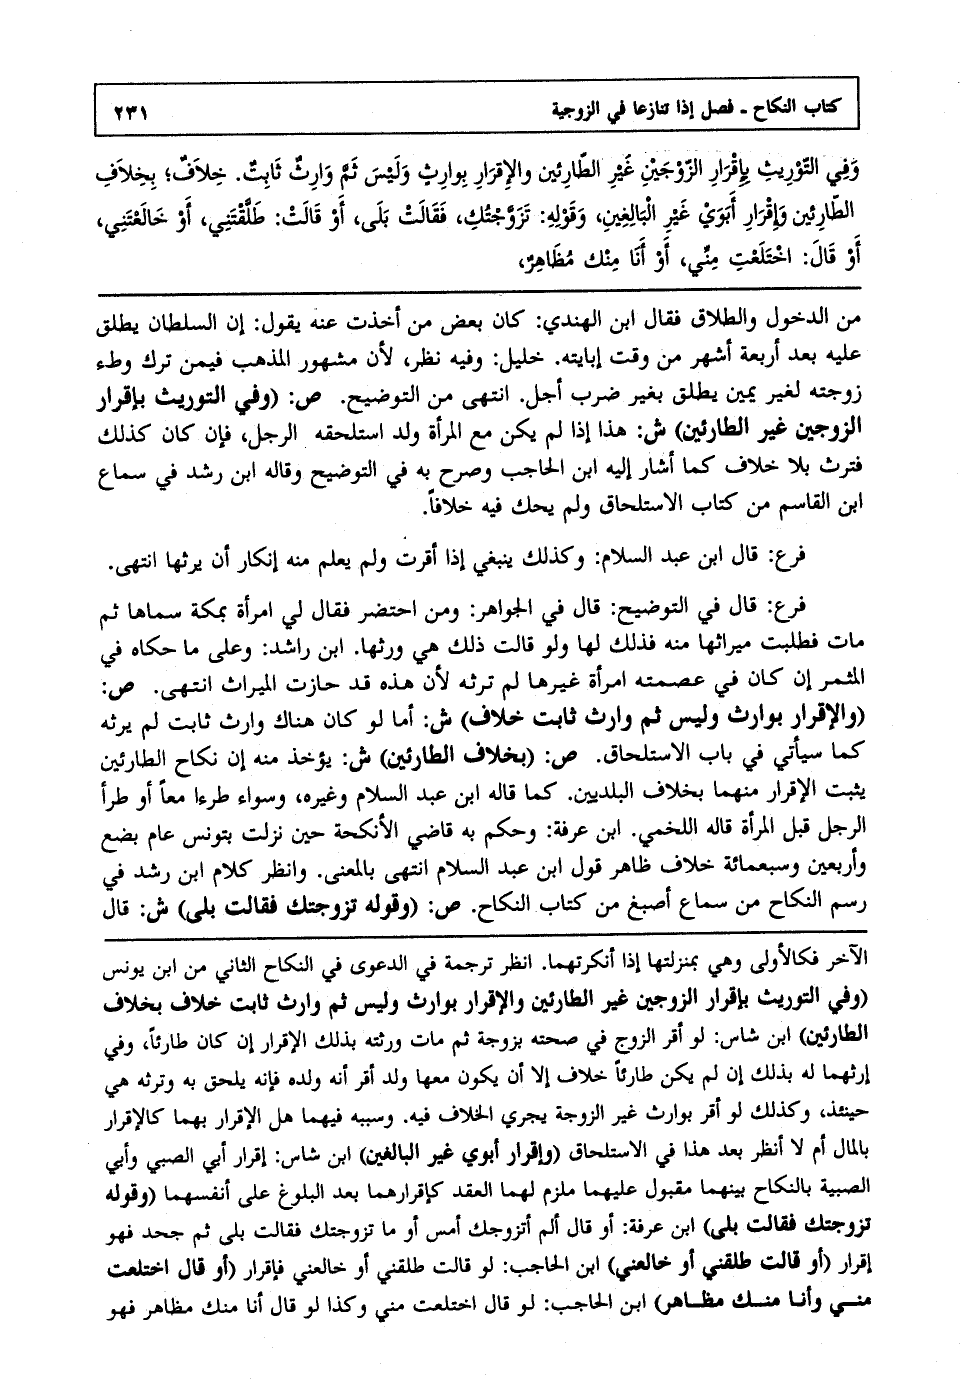 كتاب النكاح ـ فصل إذا تنازعا في الزوجية ٢٣١
وَفِي التَّوْرِيثِ بِإِقْرَارِ الزَّوْجَيْنِ غَيْرِ الطَّارِئَيْنِ والإِقْرَارِ بِوارِثٍ وَلَيْسَ ثَمَّ وَارِثٌ ثَابِتٌ. خِلاَفٌ؛ بِخِلاَفِ
الطَّارِئَيْنِ وَإِقْرَارِ أَبَوَيْ غَيْرِ الْبَالِغَيْنِ، وَقَوْلِهِ: تَزَوَّجْتُكِ، فَقَالَتْ بَلَى، أَوْ قَالَتْ: طَلَّقْتَنِي، أَوْ خَالَعْتَنِي،
أَوْ قَالَ: اخْتَلَعْتِ مِنِّي، أَوْ أَنَا مِنْك مُظَاهِرٌ،
من الدخول والطلاق فقال ابن الهندي: كان بعض من أخذت عنه يقول: إن السلطان يطلق
عليه بعد أربعة أشهر من وقت إبايته. خليل: وفيه نظر، لأن مشهور المذهب فيمن ترك وطء
زوجته لغير يمين يطلق بغير ضرب أجل. انتهى من التوضيح. ص: (وفي التوريث بإقرار
الزوجين غير الطارئين) ش: هذا إذا لم يكن مع المرأة ولد استلحقه الرجل، فإن كان كذلك
فترث بلا خلاف كما أشار إليه ابن الحاجب وصرح به في التوضيح وقاله ابن رشد في سماع
ابن القاسم من كتاب الاستلحاق ولم يحك فيه خلافاً.
فرع: قال ابن عبد السلام: وكذلك ينبغي إذا أقرت ولم يعلم منه إنكار أن يرثها انتهى.
فرع: قال في التوضيح: قال في الجواهر: ومن احتضر فقال لي امرأة بمكة سماها ثم
مات فطلبت ميراثها منه فذلك لها ولو قالت ذلك هي ورثها. ابن راشد: وعلى ما حكاه في
المثمر إن كان في عصمته امرأة غيرها لم ترثه لأن هذه قد حازت الميراث انتهى. ص:
(والإقرار بوارث وليس ثم وارث ثابت خلاف) ش: أما لو كان هناك وارث ثابت لم يرثه
كما سيأتي في باب الاستلحاق. ص: (بخلاف الطارئين) ش: يؤخذ منه إن نكاح الطارئين
يثبت الإقرار منهما بخلاف البلديين. كما قاله ابن عبد السلام وغيره، وسواء طرءا معاً أو طرأ
الرجل قبل المرأة قاله اللخمي. ابن عرفة: وحكم به قاضي الأنكحة حين نزلت بتونس عام بضع
وأربعين وسبعمائة خلاف ظاهر قول ابن عبد السلام انتهى بالمعنى. وانظر كلام ابن رشد في
رسم النكاح من سماع أصبغ من كتاب النكاح. ص: (وقوله تزوجتك فقالت بلى) ش: قال
الآخر فكالأولى وهي بمنزلتها إذا أنكرتهما. انظر ترجمة في الدعوى في النكاح الثاني من ابن يونس
(وفي التوريث بإقرار الزوجين غير الطارئين والإقرار بوارث وليس ثم وارث ثابت خلاف بخلاف
الطارئين) ابن شاس: لو أقر الزوج في صحته بزوجة ثم مات ورثته بذلك الإقرار إن كان طارئاً، وفي
إرثهما له بذلك إن لم يكن طارئاً خلاف إلا أن يكون معها ولد أقر أنه ولده فإنه يلحق به وترثه هي
حينئذ، وكذلك لو أقر بوارث غير الزوجة يجري الخلاف فيه. وسببه فيهما هل الإقرار بهما كالإقرار
بالمال أم لا أنظر بعد هذا في الاستلحاق (وإقرار أبوي غير البالغين) ابن شاس: إقرار أبي الصبي وأبي
الصبية بالنكاح بينهما مقبول عليهما ملزم لهما العقد كإقرارهما بعد البلوغ على أنفسهما (وقوله
تزوجتك فقالت بلى) ابن عرفة: أو قال ألم أتزوجك أمس أو ما تزوجتك فقالت بلى ثم جحد فهو
إقرار (أو قالت طلقني أو خالعني) ابن الحاجب: لو قالت طلقني أو خالعني فإقرار (أو قال اختلعت
مني وأنا منك مظاهر) ابن الحاجب: لو قال اختلعت مني وكذا لو قال أنا منك مظاهر فهو